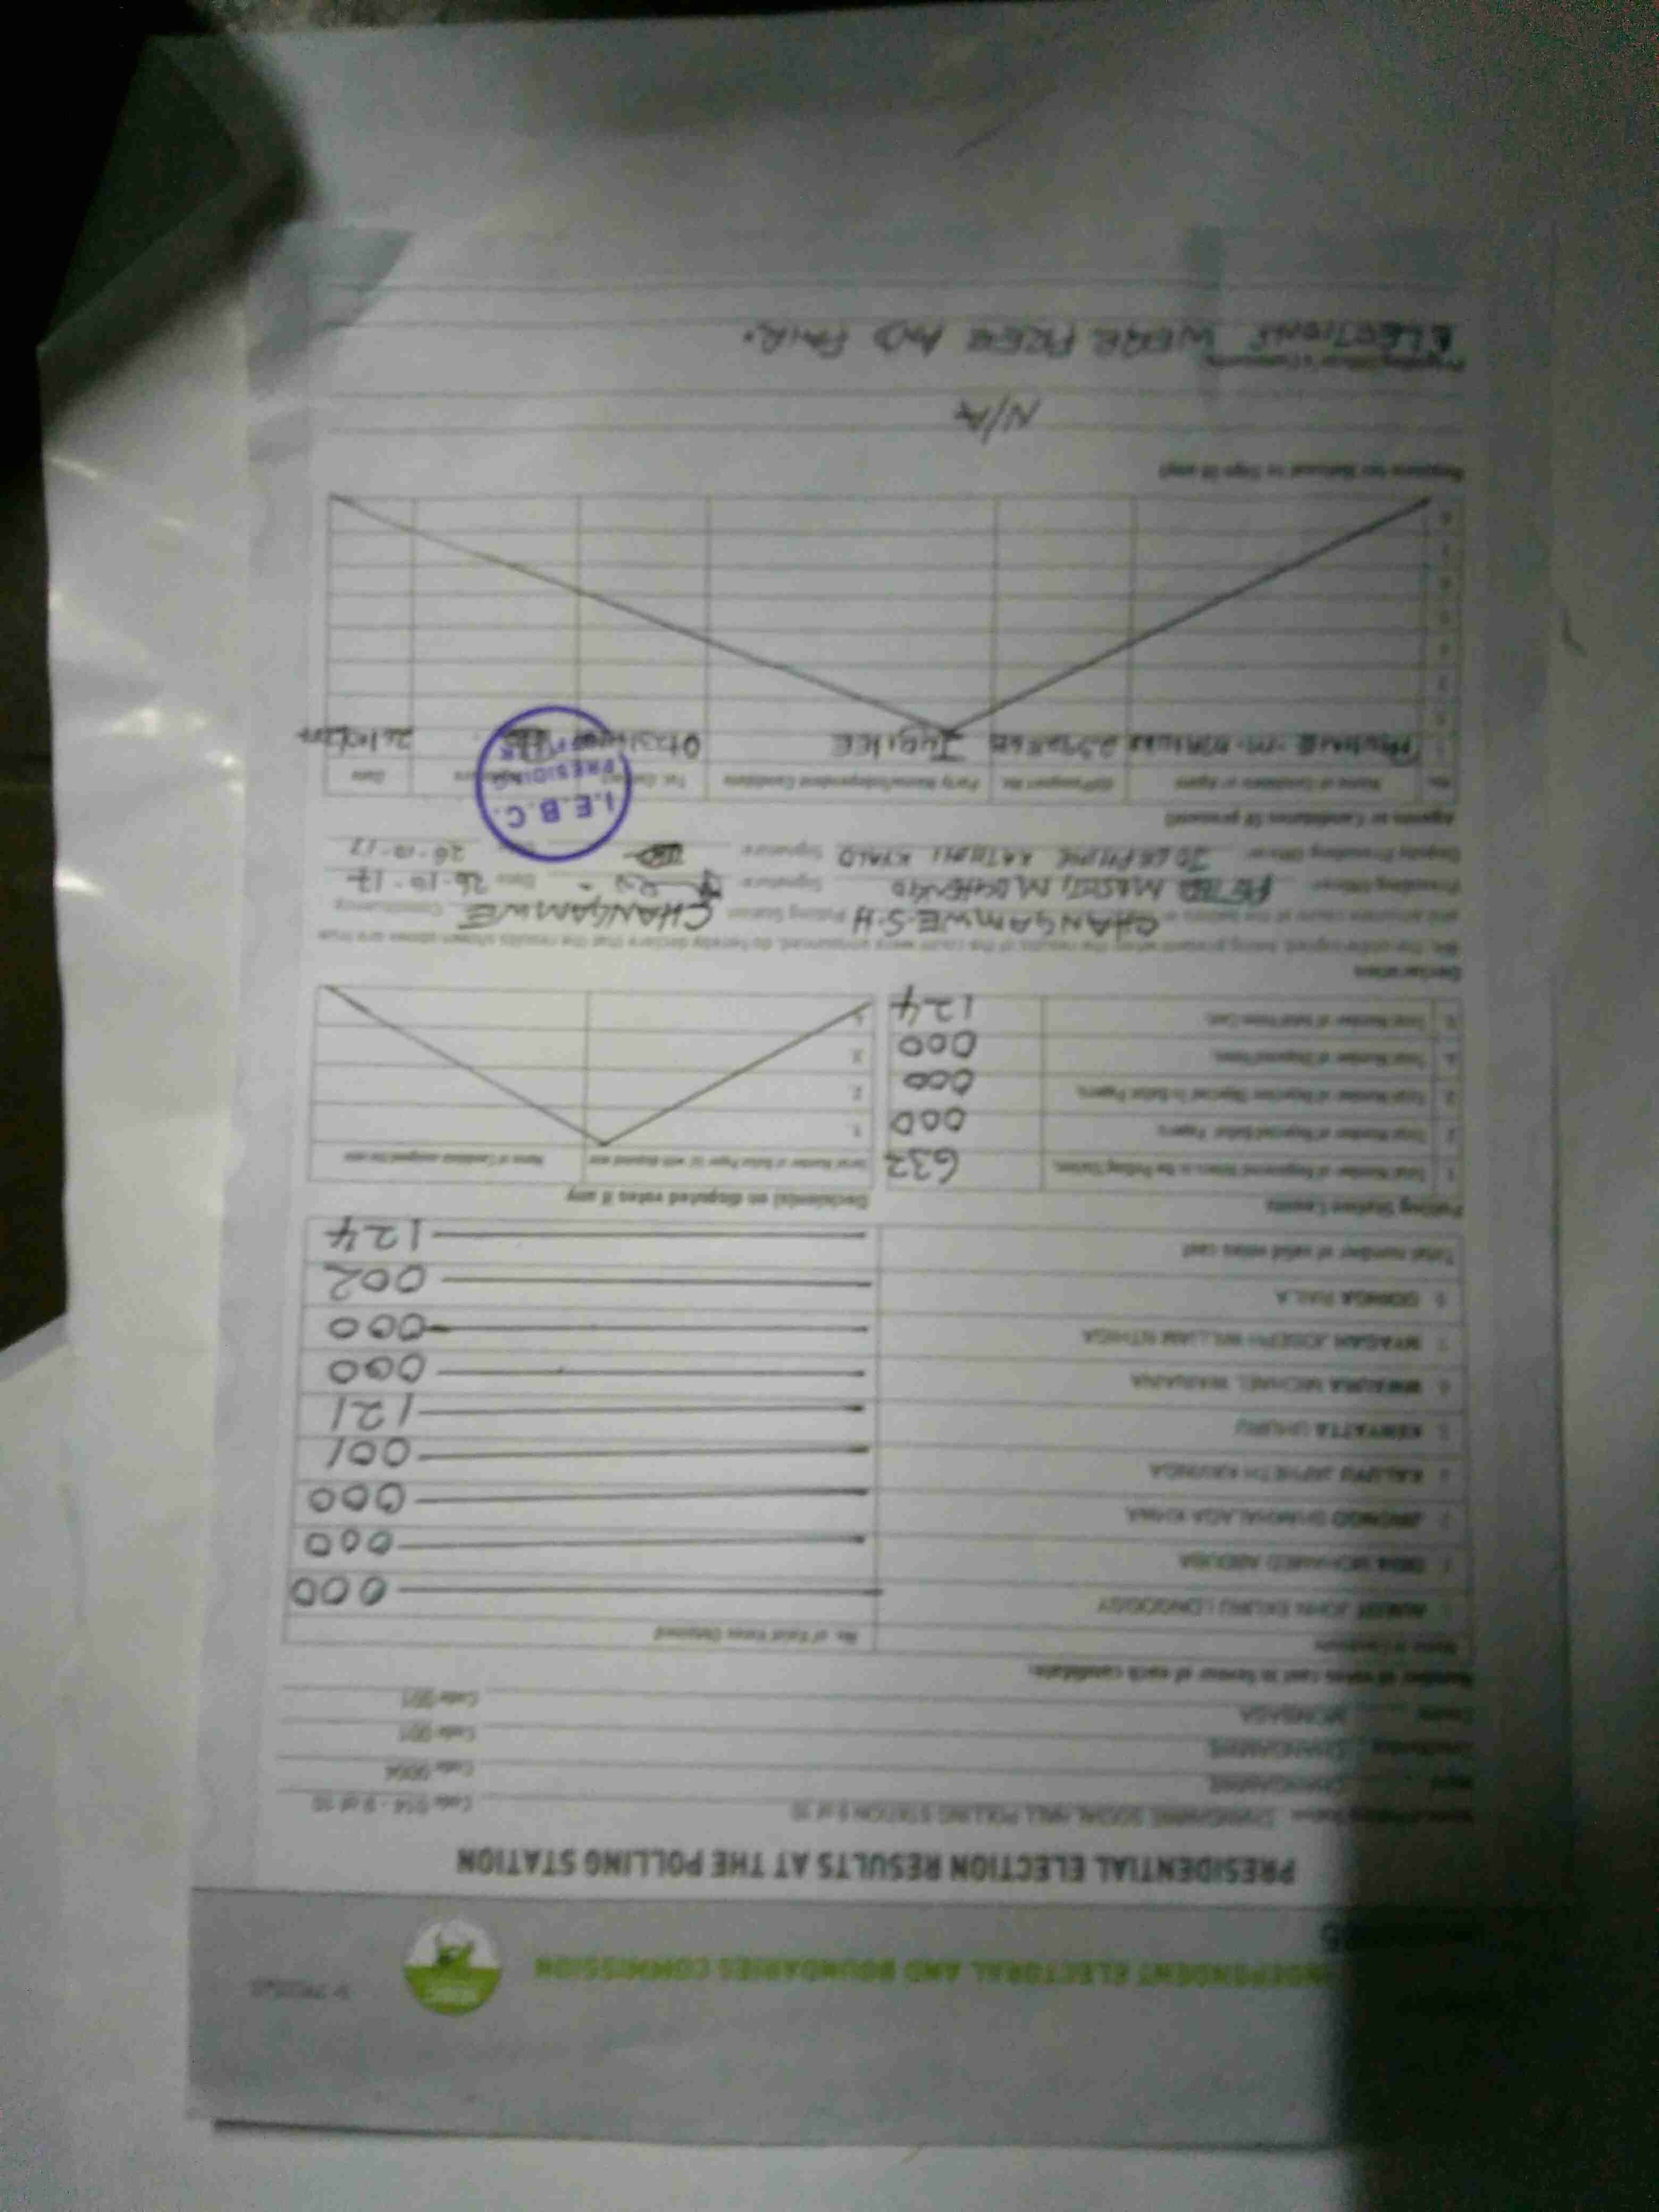 INDEPENDENT ELECTORAL AND BOUNDARIES COMMISSION
IEBC
PRESIDENTIAL ELECTION RESULTS AT THE POLLING STATION
Name of Polling Station CHANGAMWE SOCIAL HALL POLLING STATION 9 of 10 Code 014 - 9 of 10
Ward CHANGAMWE Code 0004
Constituency CHANGAMWE Code 001
County MOMBASA Code 001
Number of votes cast in favour of each candidate:
Name of Candidate No. of Valid Votes Obtained
1. AUKOT JOHN EKURU LONGOGGY 000
2. DIDA MOHAMED ABDUBA 000
3. JIRONGO SHAKHALAGA KHWA 000
4. KALUYU JAPHETH KAVINGA 001
5. KENYATTA UHURU 121
6. MWAURA MICHAEL WAINAINA 000
7. NYAGAH JOSEPH WILLIAM NTHIGA 000
8. ODINGA RAILA 002
Total number of valid votes cast 124
Polling Station Counts
Decision(s) on disputed votes if any
1. Total Number of Registered Voters in the Polling Station 632
2. Total Number of Rejected Ballot Papers 000
3. Total Number of Rejection Objected To Ballot Papers 000
4. Total Number of Disputed Votes 000
5. Total Number of Valid Votes Cast 124
Serial Number of Ballot Paper (s) with disputed vote Name of Candidate assigned the vote
1
2
3
4
Declaration
We, the undersigned, being present when the results of the count were announced, do hereby declare that the results shown above are true
and accurate count of the ballots in CHANGAMWE S.H Polling Station CHANGAMWE Constituency
Presiding Officer Signature Date 26-10-17
Deputy Presiding Officer JOSEPHINE KYALO Signature 26-10-17
Agents or Candidates (if present)
No. Name of Candidate or Agent ID/Passport No. Party Name/Independent Candidate Date
1 JUBILEE
I.E.B.C.
PRESIDING
Reasons for Refusal to Sign (if any)
N/A
Presiding Officer's Comments
ELECTIONS WERE FREE AND FAIR.